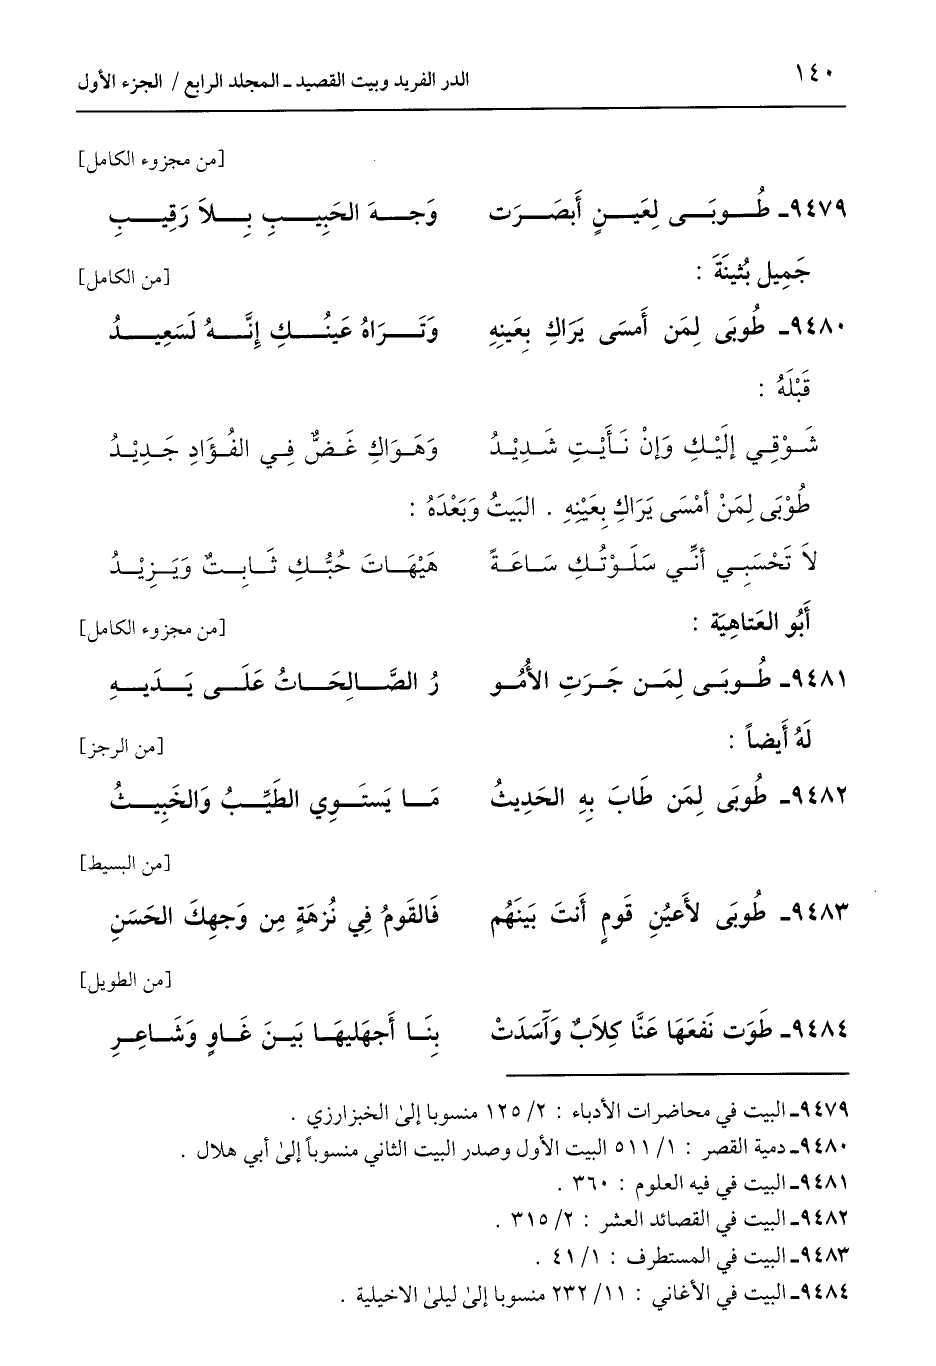 ١٤٠ الدر الفريد وبيت القصيد ـ المجلد الرابع / الجزء الأول
[من مجزوء الكامل]
٩٤٧٩ـ طُـوبَـى لِعَيـنٍ أَبصَـرَت وَجـهَ الحَبِيـبِ بِـلاَ رَقِيـبِ
جَمِيل بُثينَةَ : [من الكامل]
٩٤٨٠ـ طُوبَى لِمَن أَمسَى يَرَاكِ بِعَينِهِ وَتَـرَاهُ عَينُـكِ إِنَّـهُ لَسَعِيـدُ
قَبْلَهُ :
شَـوْقِي إِلَيْـكِ وَإِنْ نَـأَيْـتِ شَـدِيْـدُ وَهَـوَاكِ غَـضٌّ فِـي الفُـؤَادِ جَـدِيْـدُ
طُوْبَى لِمَنْ أَمْسَى يَرَاكِ بِعَيْنِهِ . البَيتُ وَبَعْدَهُ :
لاَ تَحْسَبِـي أَنِّـي سَلَـوْتُـكِ سَـاعَـةً هَيْهَـاتَ حُبُّـكِ ثَـابِـتٌ وَيَـزِيْـدُ
أَبُو العَتاهِيَة : [من مجزوء الكامل]
٩٤٨١ـ طُـوبَـى لِمَـن جَـرَتِ الأُمُـو رُ الصَّـالِحَـاتُ عَلَـى يَـدَيـهِ
لَهُ أَيضاً : [من الرجز]
٩٤٨٢ـ طُوبَى لِمَن طَابَ بِهِ الحَدِيثُ مَـا يَستَـوِي الطَيِّـبُ وَالخَبِيـثُ
[من البسيط]
٩٤٨٣ـ طُوبَى لأَعيُنِ قَومٍ أَنتَ بَينَهُم فَالقَومُ فِي نُزهَةٍ مِن وَجهِكَ الحَسَنِ
[من الطويل]
٩٤٨٤ـ طَوَت نَفعَهَا عَنَّا كِلاَبٌ وَآسَدَتْ بِنَـا أَجهَلِيهَـا بَيـنَ غَـاوٍ وَشَـاعِـرِ
٩٤٧٩ـ البيت في محاضرات الأدباء : ٢/ ١٢٥ منسوبا إلىٰ الخبزارزي .
٩٤٨٠ـ دمية القصر : ١/ ٥١١ البيت الأول وصدر البيت الثاني منسوباً إلىٰ أبي هلال .
٩٤٨١ـ البيت في فيه العلوم : ٣٦٠ .
٩٤٨٢ـ البيت في القصائد العشر : ٢/ ٣١٥ .
٩٤٨٣ـ البيت في المستطرف : ١/ ٤١ .
٩٤٨٤ـ البيت في الأغاني : ١١/ ٢٣٢ منسوبا إلىٰ ليلىٰ الاخيلية .